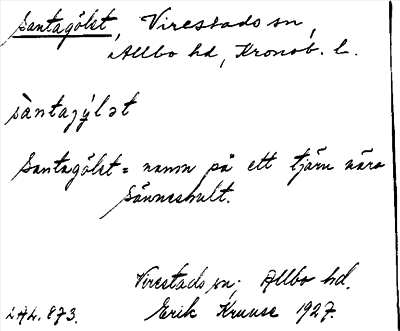 Santagölet, Virestads sn,
Allbo hd, Kronob. l.
sàntajýlət
Santagölet = namn på ett tjärn nära
Sånneshult.
Virestads sn; Allbo hd.
LAL. 873. Erik Kruuse 1927.